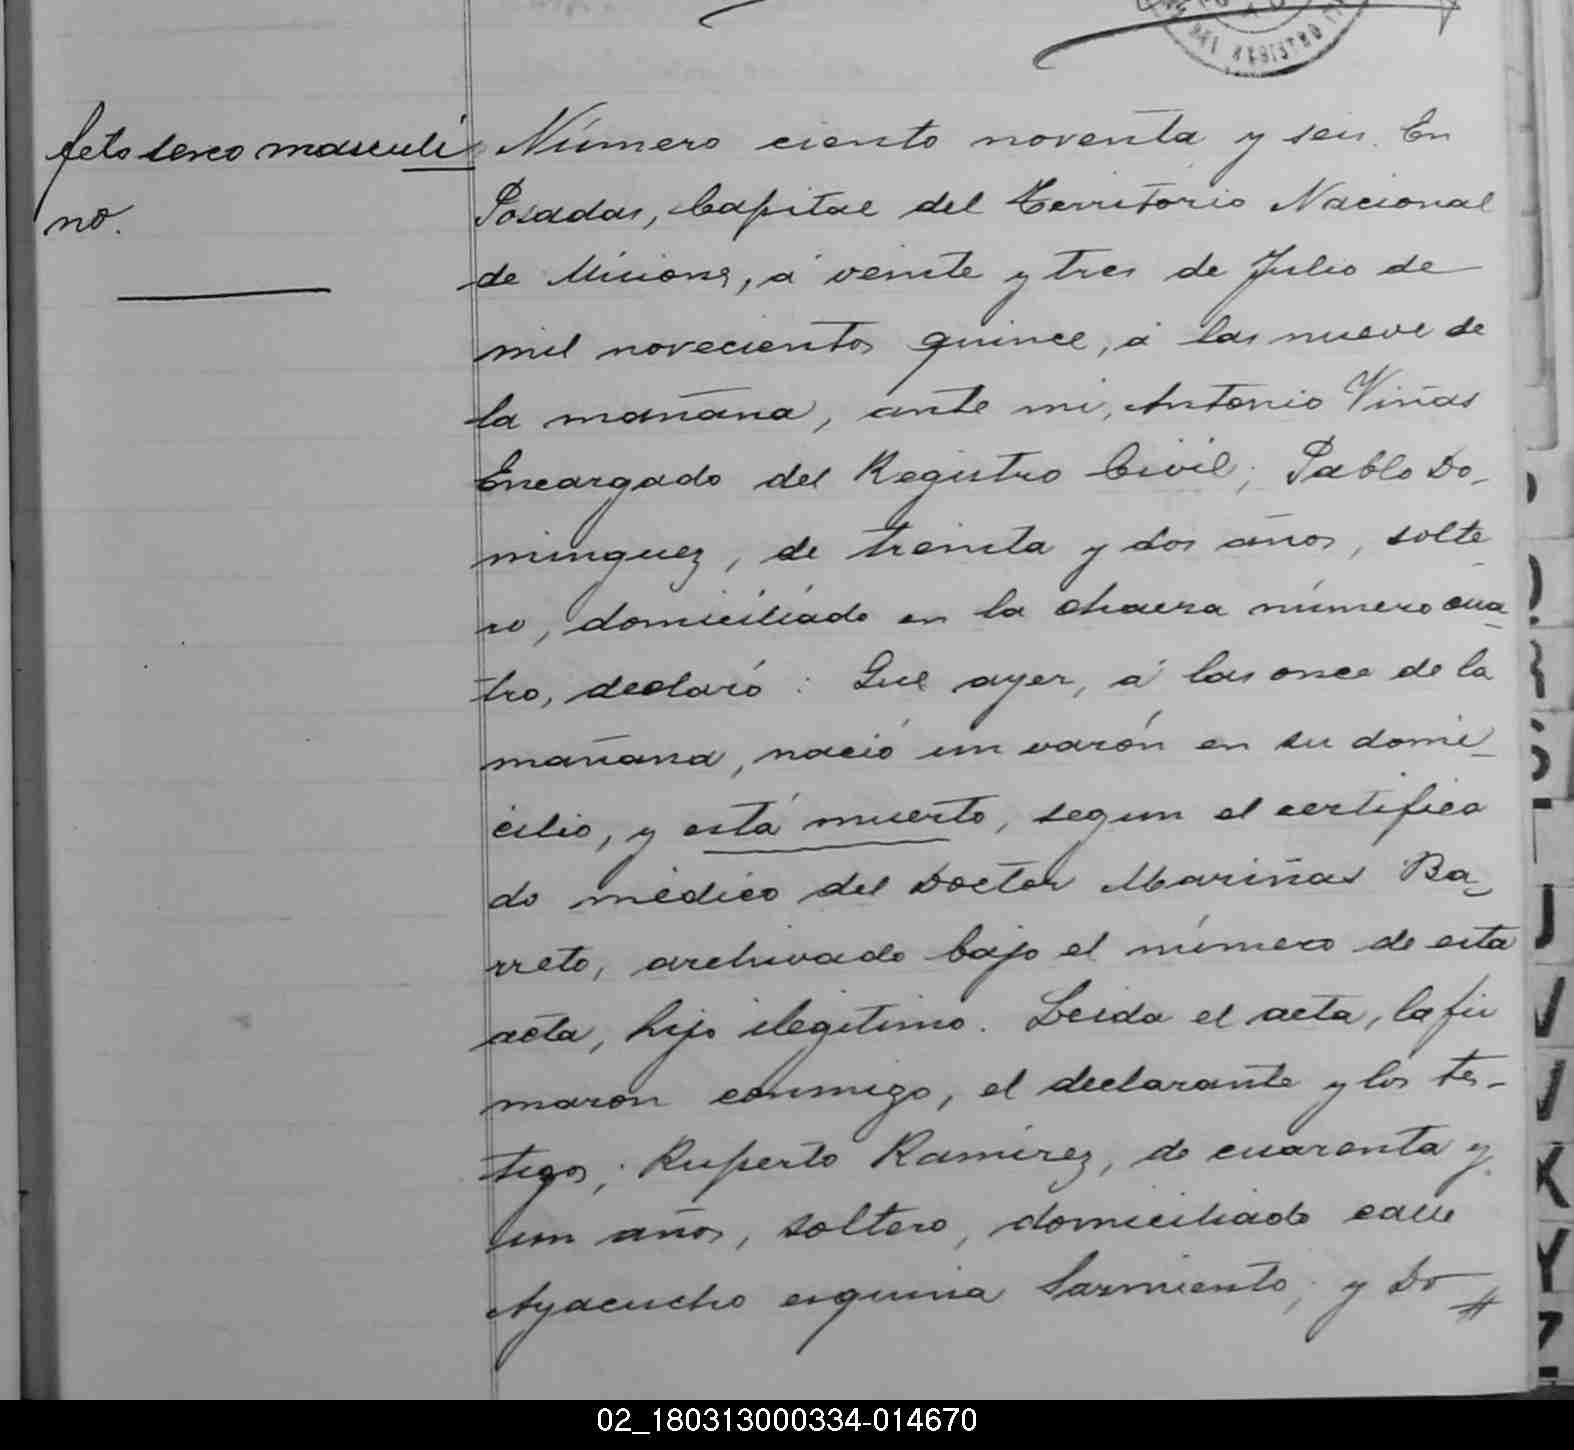 DEL REGISTRO
feto sexo masculi
no.
Número ciento noventa y seis. En
Posadas, Capital del Territorio Nacional
de Misiones, á veinte y tres de Julio de
mil novecientos quince, á las nueve de
la mañana, ante mi, Antonio Viñas
Encargado del Registro Civil; Pablo Do-
minguez, de treinta y dos años, solte
ro, domiciliado en la chacra número cua
tro, declaró: Que ayer, á las once de la
mañana, nació un varón en su domi-
cilio, y está muerto, segun el certifica
do médico del Doctor Mariñas Ba-
rreto, archivado bajo el número de esta
acta, hijo ilegitimo. Leida el acta, la fir
maron conmigo, el declarante y los tes-
tigos; Ruperto Ramírez, de cuarenta y
un años, soltero, domiciliado calle
Ayacucho esquina Sarmiento; y Do
02_180313000334-014670